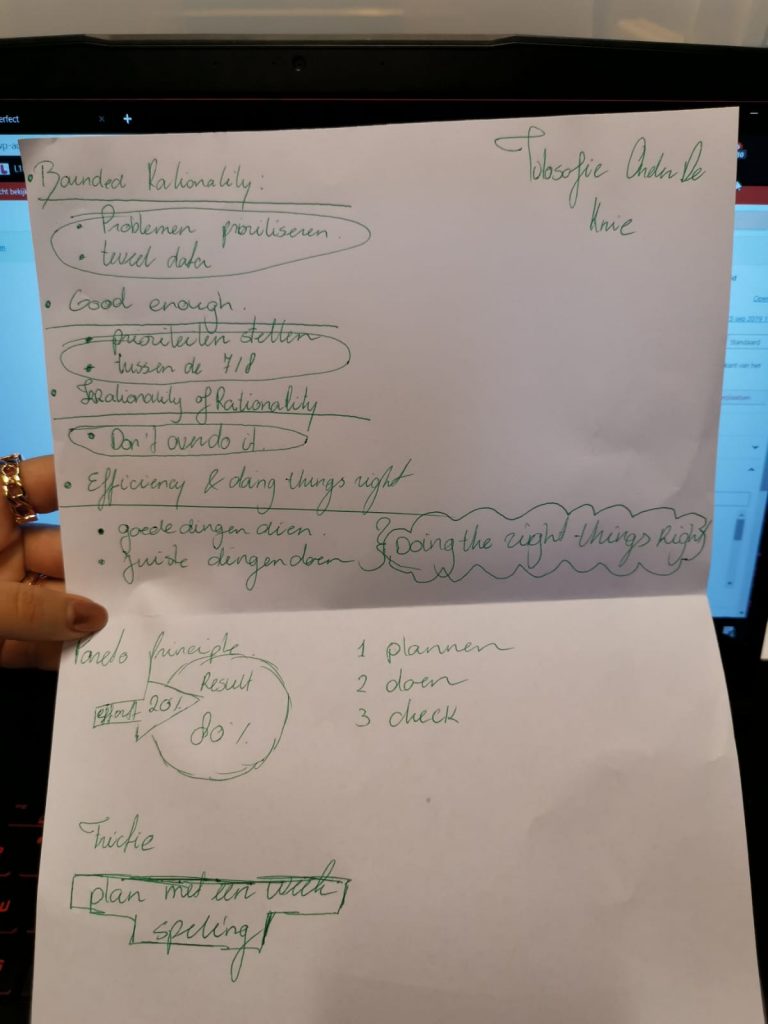 Filosofie Onder De
Knie
• Bounded Rationality:
• Problemen prioriliseren.
• teveel data
• Good enough.
• prioriteiten stellen
• tussen de 7/8
• Irrationality of Rationality
• Don't overdo it.
• Efficiency & doing things right
• goede dingen doen.
• Juiste dingen doen
Doing the right things Right
Pareto Principle.
Result
effort 20%
80%
1 plannen
2 doen
3 check
Frictie
plan met een week
speling